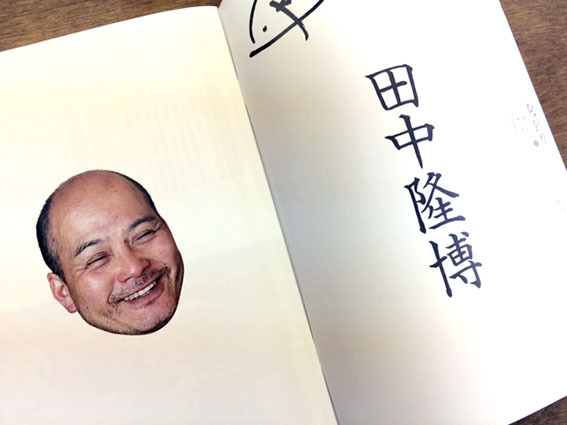 田中隆博